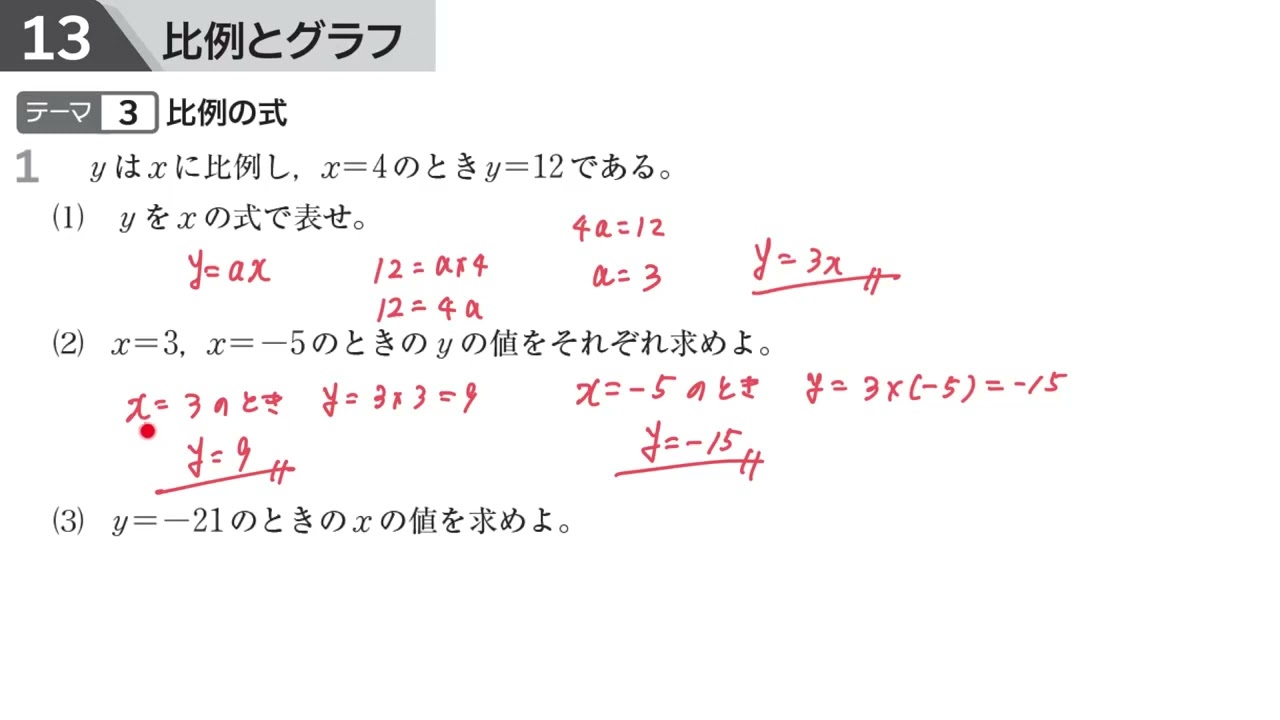 13 比例とグラフ
テーマ 3 比例の式
1 yはxに比例し，x=4のときy=12である。
(1) yをxの式で表せ。
4a=12
y=ax 12=a×4 a=3 y=3x
12=4a
(2) x=3，x=-5のときのyの値をそれぞれ求めよ。
x=3のとき y=3×3=9 x=-5のとき y=3×(-5)=-15
y=9 y=-15
(3) y=-21のときのxの値を求めよ。